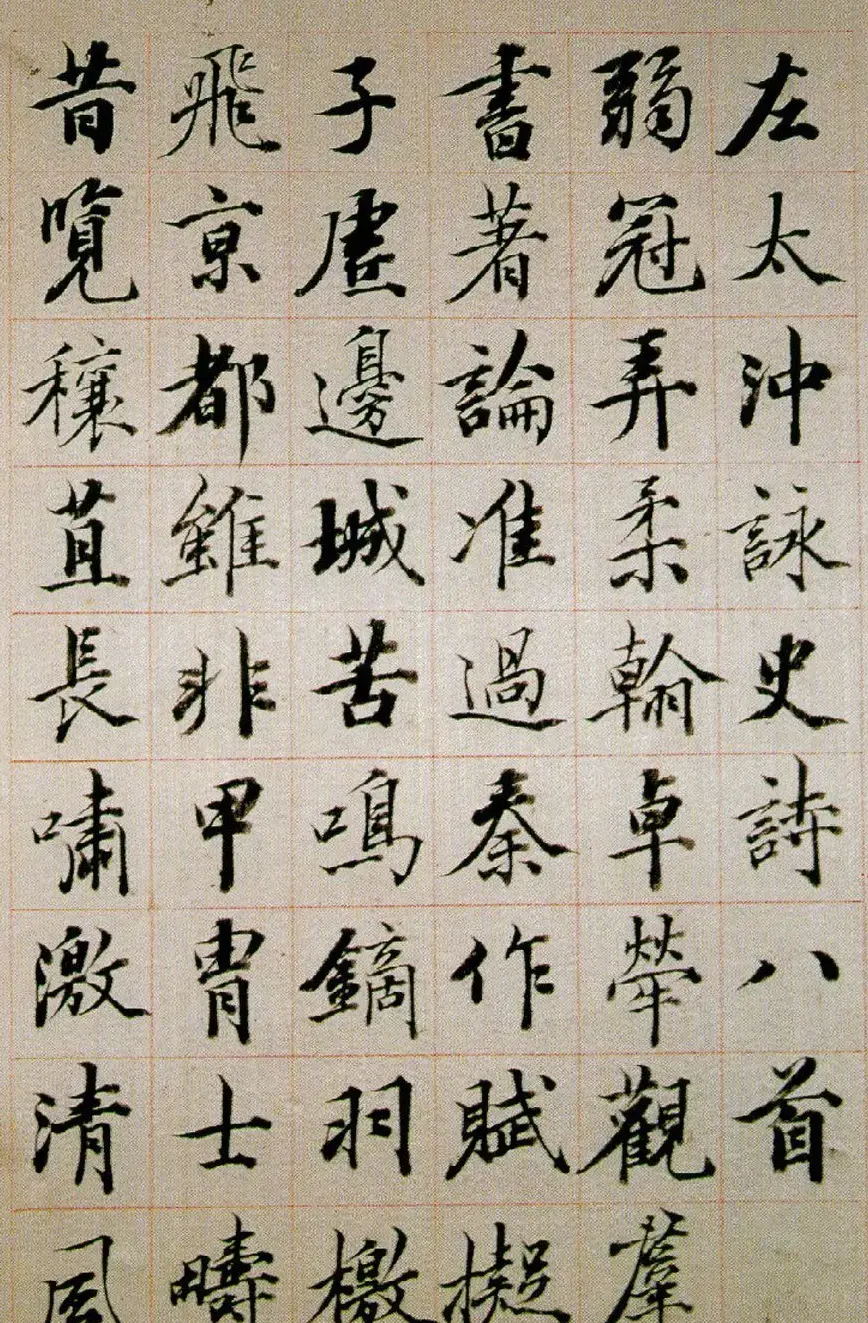 左太沖詠史詩八首
弱冠弄柔翰卓犖觀羣
書著論准過秦作賦擬
子虛邊城苦鳴鏑羽檄
飛京都雖非甲胄士疇
昔覽穰苴長嘯激清風